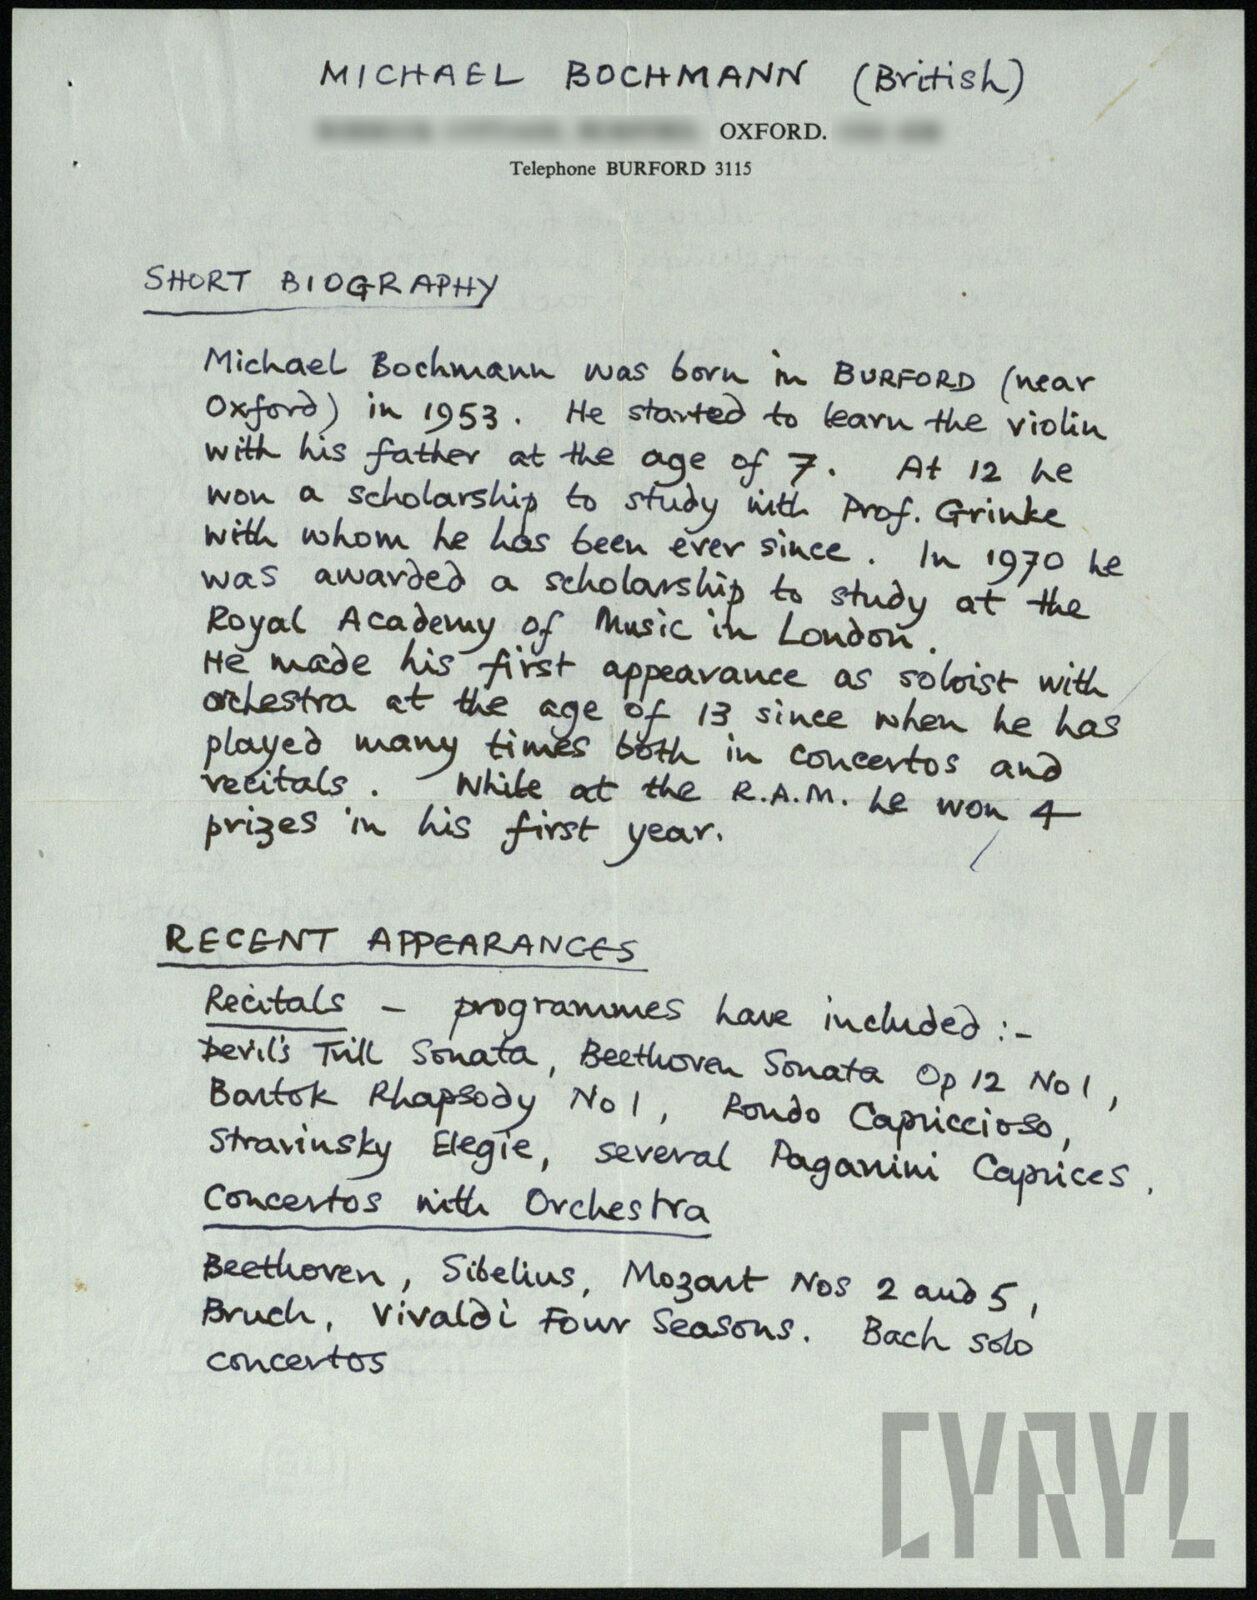 MICHAEL BOCHMANN (British)
OXFORD.
Telephone BURFORD 3115
SHORT BIOGRAPHY
Michael Bochmann was born in BURFORD (near
Oxford) in 1953. He started to learn the violin
with his father at the age of 7. At 12 he
won a scholarship to study with Prof. Grinke
with whom he has been ever since. In 1970 he
was awarded a scholarship to study at the
Royal Academy of Music in London.
He made his first appearance as soloist with
orchestra at the age of 13 since when he has
played many times both in concertos and
recitals. While at the R.A.M. he won 4
prizes in his first year.
RECENT APPEARANCES
Recitals - programmes have included :-
Devil's Trill Sonata, Beethoven Sonata Op 12 No 1,
Bartok Rhapsody No 1, Rondo Capriccioso,
Stravinsky Elegie, several Paganini Caprices.
Concertos with Orchestra
Beethoven, Sibelius, Mozart Nos 2 and 5,
Bruch, Vivaldi Four Seasons. Bach solo
concertos
CYRYL